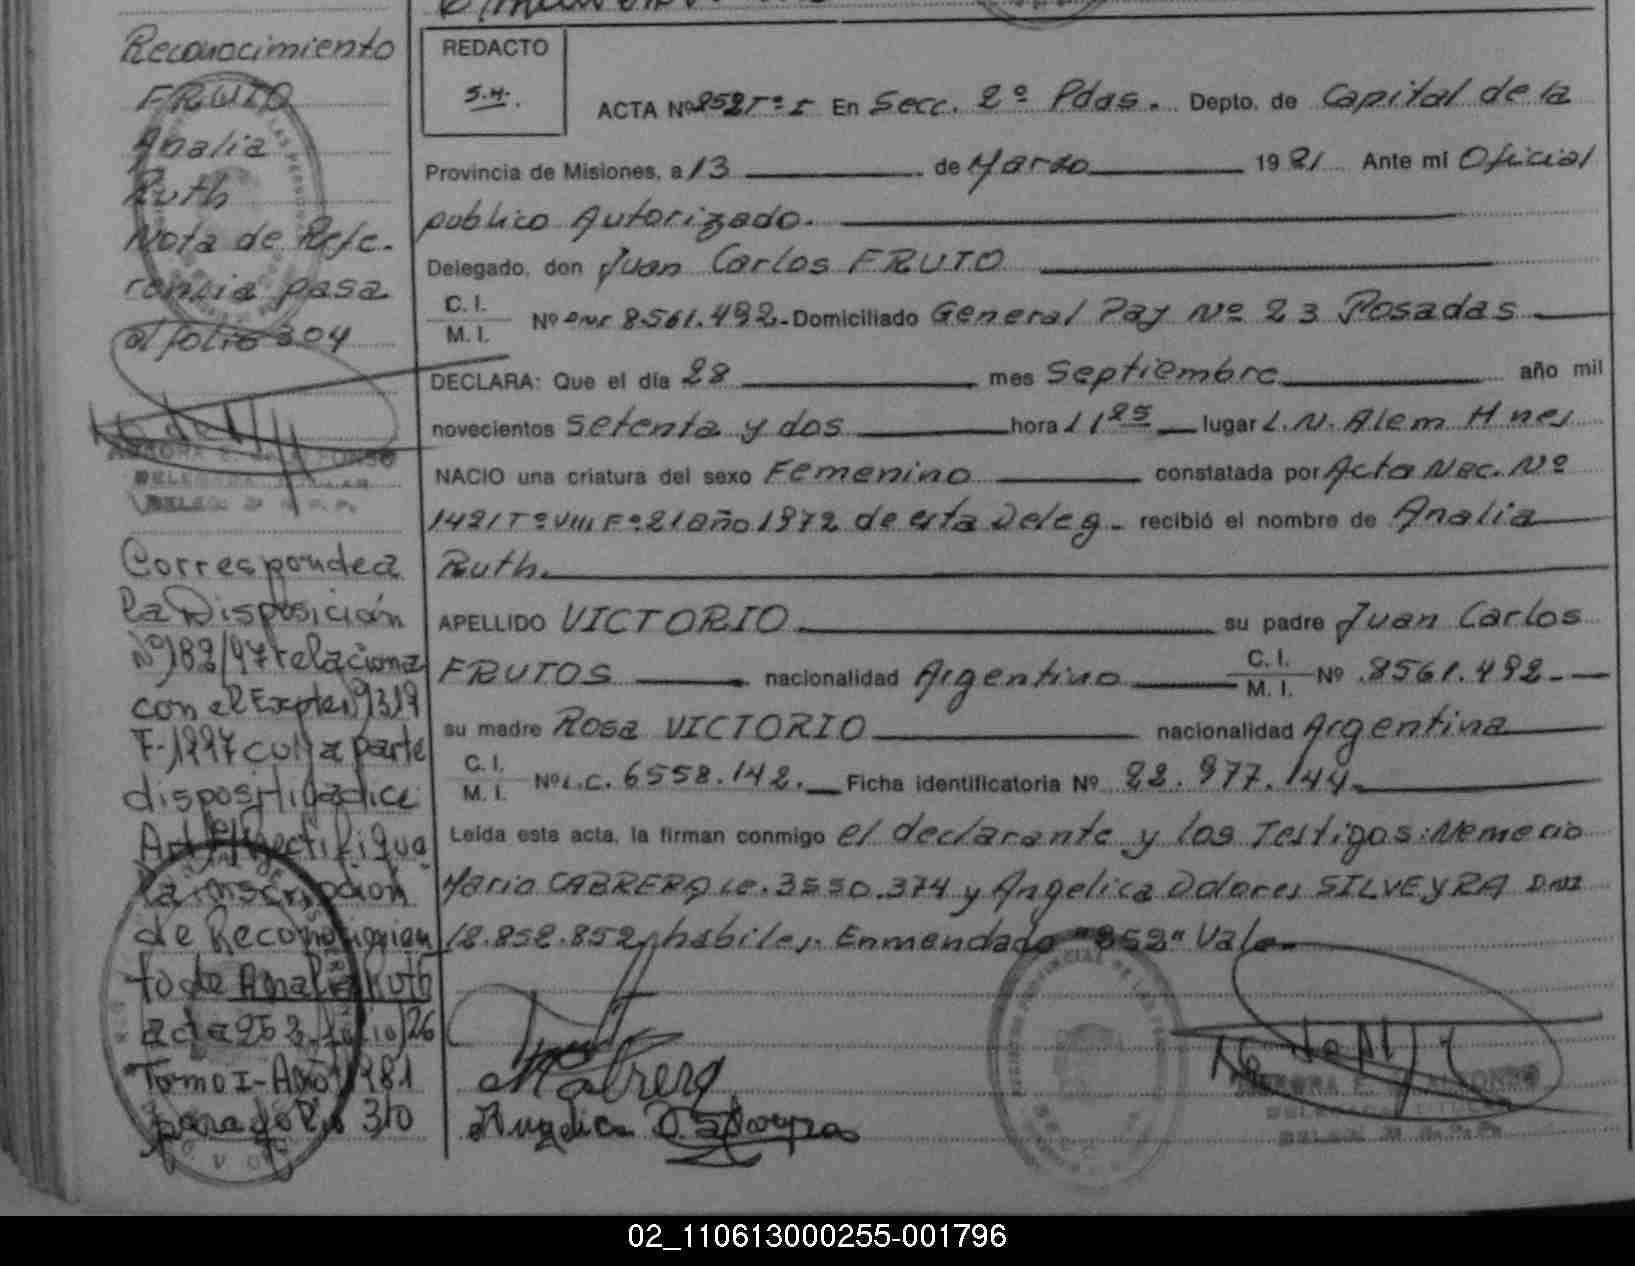 Reconocimiento
FRUTO
Analia
Ruth
Nota de Refe-
rencia pasa
al folio 304
Corresponde a
la Disposición
Nº 182/97 relaciona
con el Expte Nº 1319
F-1997 cuya parte
dispositiva dice
Art 1º Rectifique
la inscripción
de Reconocimien
to de Analia Ruth
acta 252 folio 126
Tomo I-Año 1981
para folio 310
REDACTO
S.H.
ACTA Nº 252 Tº I En Secc. 2º Pdas. Depto. de Capital de la
Provincia de Misiones, a 13 de Marzo 1981 Ante mi Oficial
publico Autorizado.
Delegado, don Juan Carlos FRUTO
C. I.
M. I. Nº DNI 8.561.492.- Domiciliado General Paz Nº 23 Posadas
DECLARA: Que el día 28 mes Septiembre año mil
novecientos Setenta y dos hora 11 25 lugar L.N. Alem Mnes
NACIO una criatura del sexo Femenino constatada por Acta Nac. Nº
1421 Tº VIII Fº 21 Año 1972 de esta Deleg. recibió el nombre de Analia
Ruth.
APELLIDO VICTORIO su padre Juan Carlos
FRUTOS nacionalidad Argentino C. I. M. I. Nº 8561.492.-
su madre Rosa VICTORIO nacionalidad Argentina
C. I.
M. I. Nº L.C. 6558.142. Ficha identificatoria Nº 22.977.144.
Leída esta acta, la firman conmigo el declarante y los Testigos: Nemecio
Mario CABRERA L.E. 3550.374 y Angelica Dolores SILVEYRA DNI
12.852.852, habiles. Enmendado "252" Vale.-
02_110613000255-001796